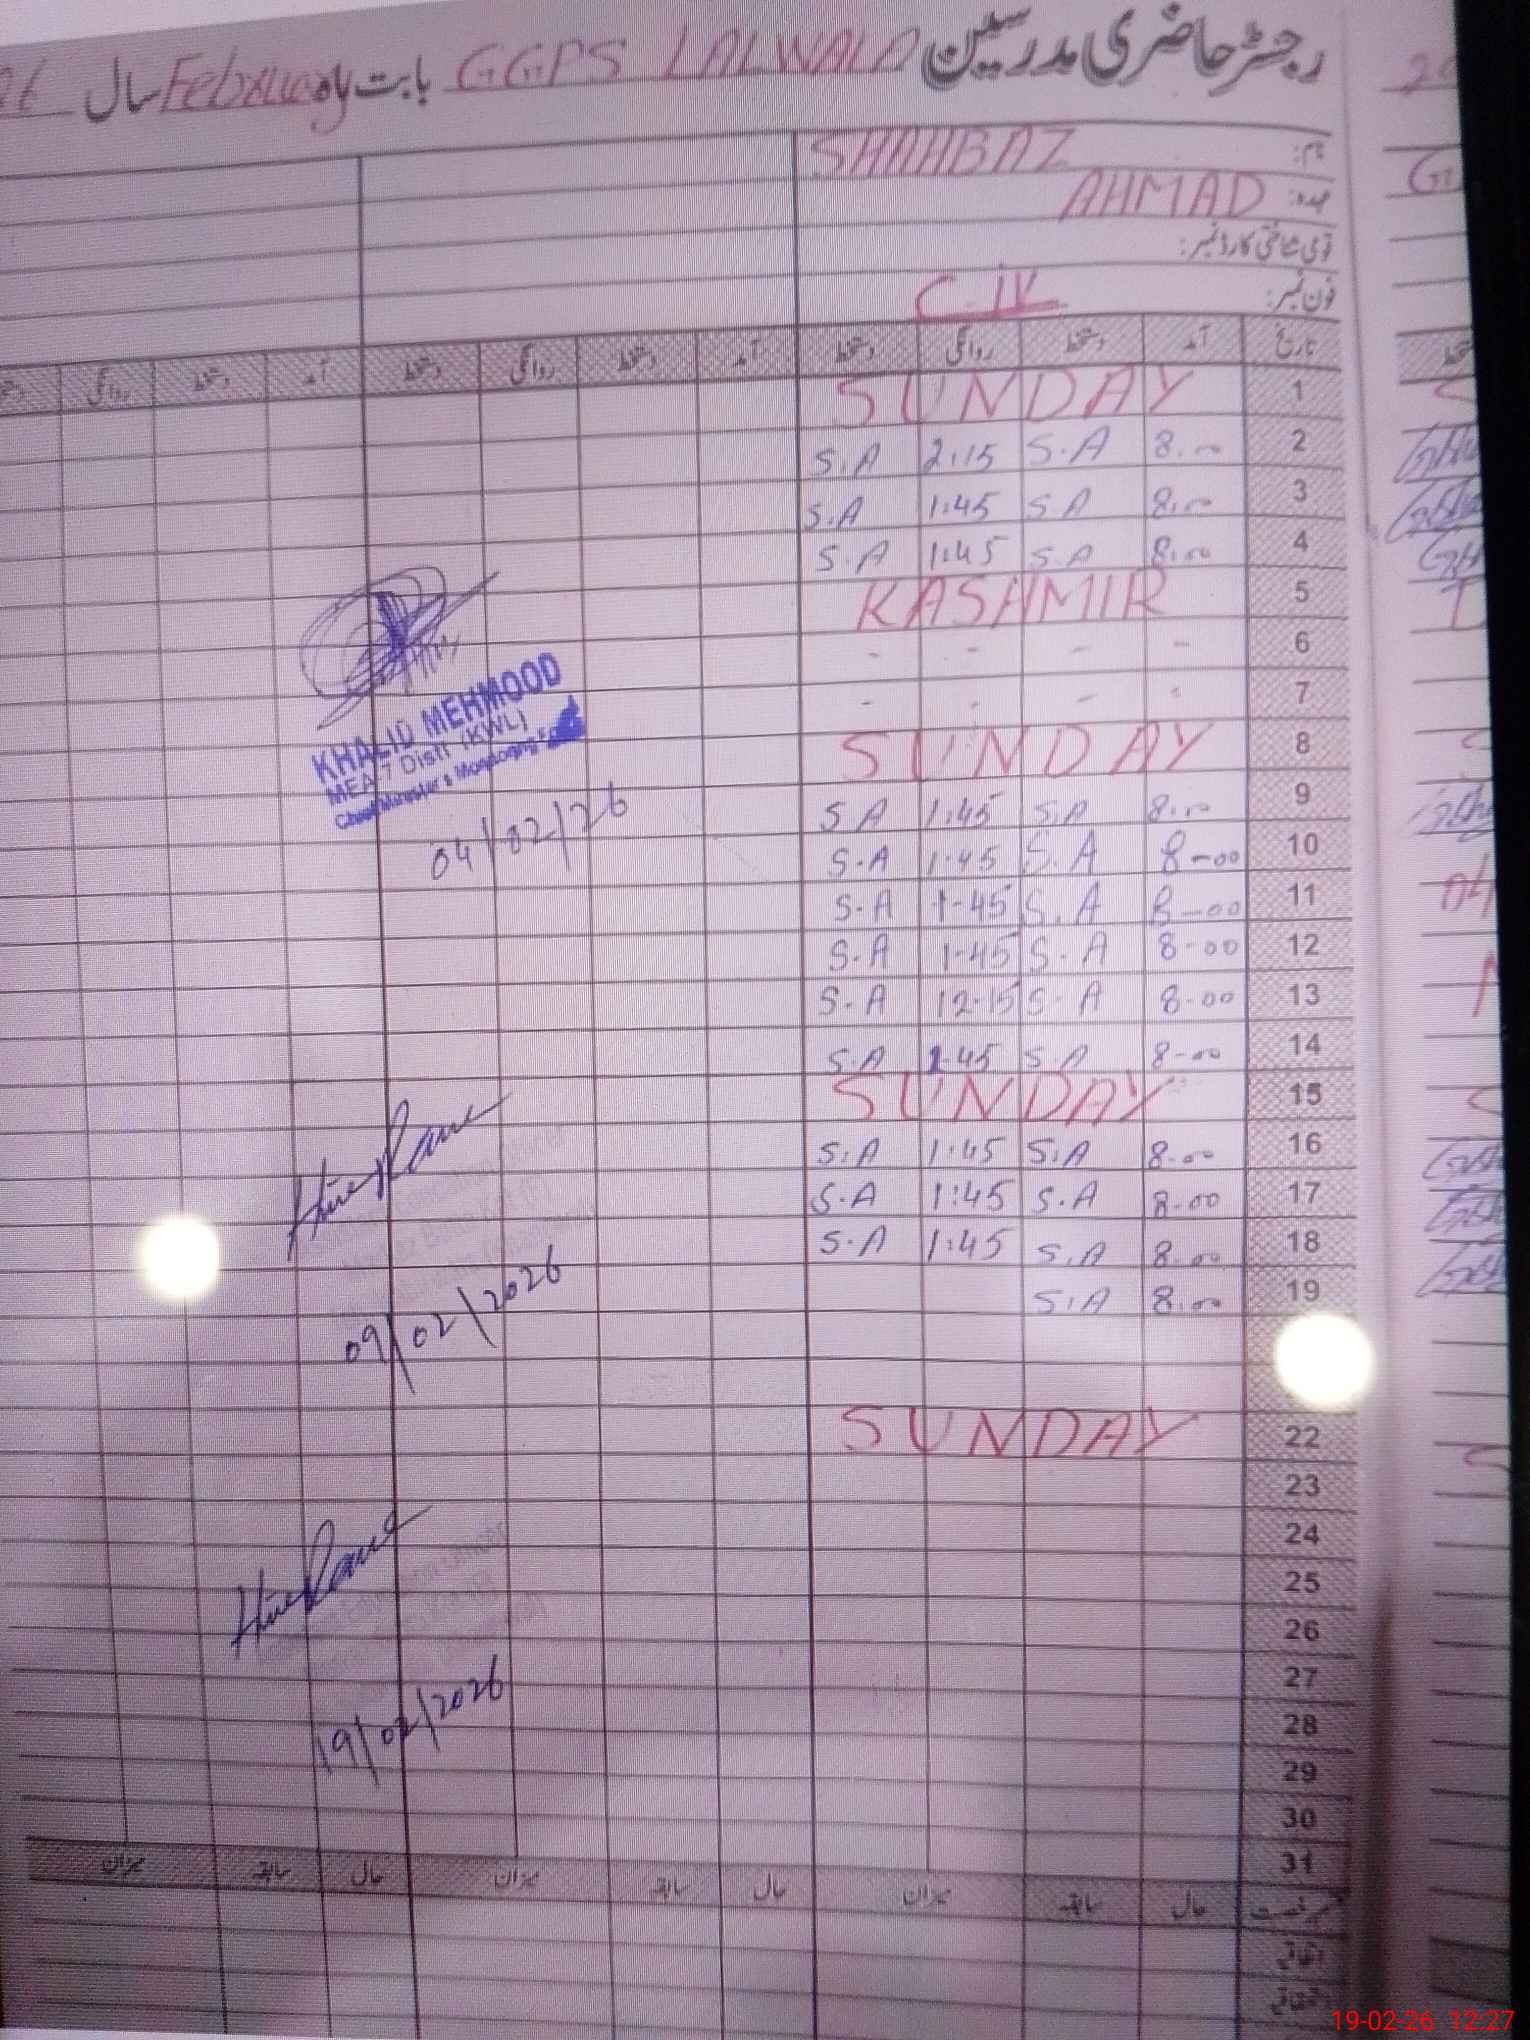 رجسٹر حاضری مدرسین GGPS LALWALA بابت February سال 26
نام: SHAHBAZ
عہدہ: AHMAD
قومی شناختی کارڈ نمبر:
فون نمبر: C-IV
تاریخ آمد دستخط روانگی دستخط آمد دستخط روانگی دستخط آمد دستخط روانگی
1 SUNDAY
2 8.00 S.A 2:15 S.A
3 8.00 S.A 1:45 S.A
4 8.00 S.A 1:45 S.A
5 KASHMIR
6 - - - -
7 - - - -
8 SUNDAY
9 8.00 S.A 1:45 S.A
10 8-00 S.A 1-45 S.A
11 8-00 S.A 1-45 S.A
12 8-00 S.A 1-45 S.A
13 8-00 S.A 12-15 S.A
14 8-00 S.A 1-45 S.A
15 SUNDAY
16 8.00 S.A 1:45 S.A
17 8.00 S.A 1:45 S.A
18 8.00 S.A 1:45 S.A
19 8.00 S.A
22 SUNDAY
23
24
25
26
27
28
29
30
31
KHALID MEHMOOD
MEA-7 Distt (KWL)
Chief Minister's Monitoring
04/02/26
09/02/2026
19/02/2026
حال سابقہ میزان حال سابقہ میزان حال سابقہ میزان
اتفاقی
19-02-26 12:27